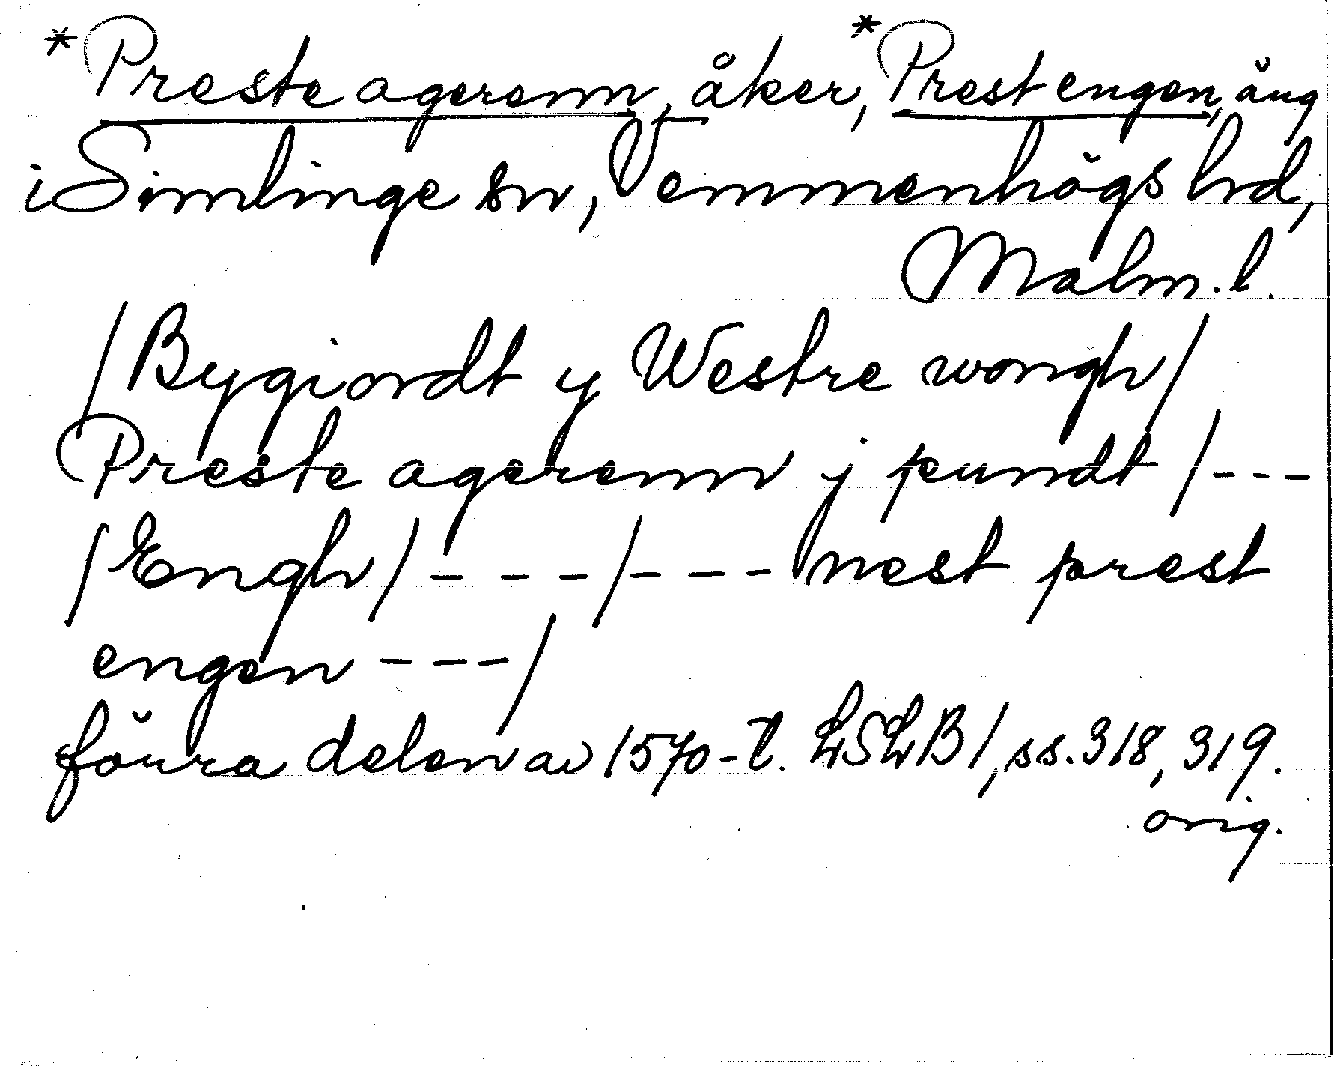 *Preste agerenn, åker, *Prest engen, äng
i Simlinge sn, Vemmenhögs hd,
Malm. l.
/Bygiordt y Westre wongh/
Preste agerenn j pundt /---
/Engh/---/--- nest prest
engen ---/
förra delen av 1570-t. LSLB1, ss. 318, 319.
orig.